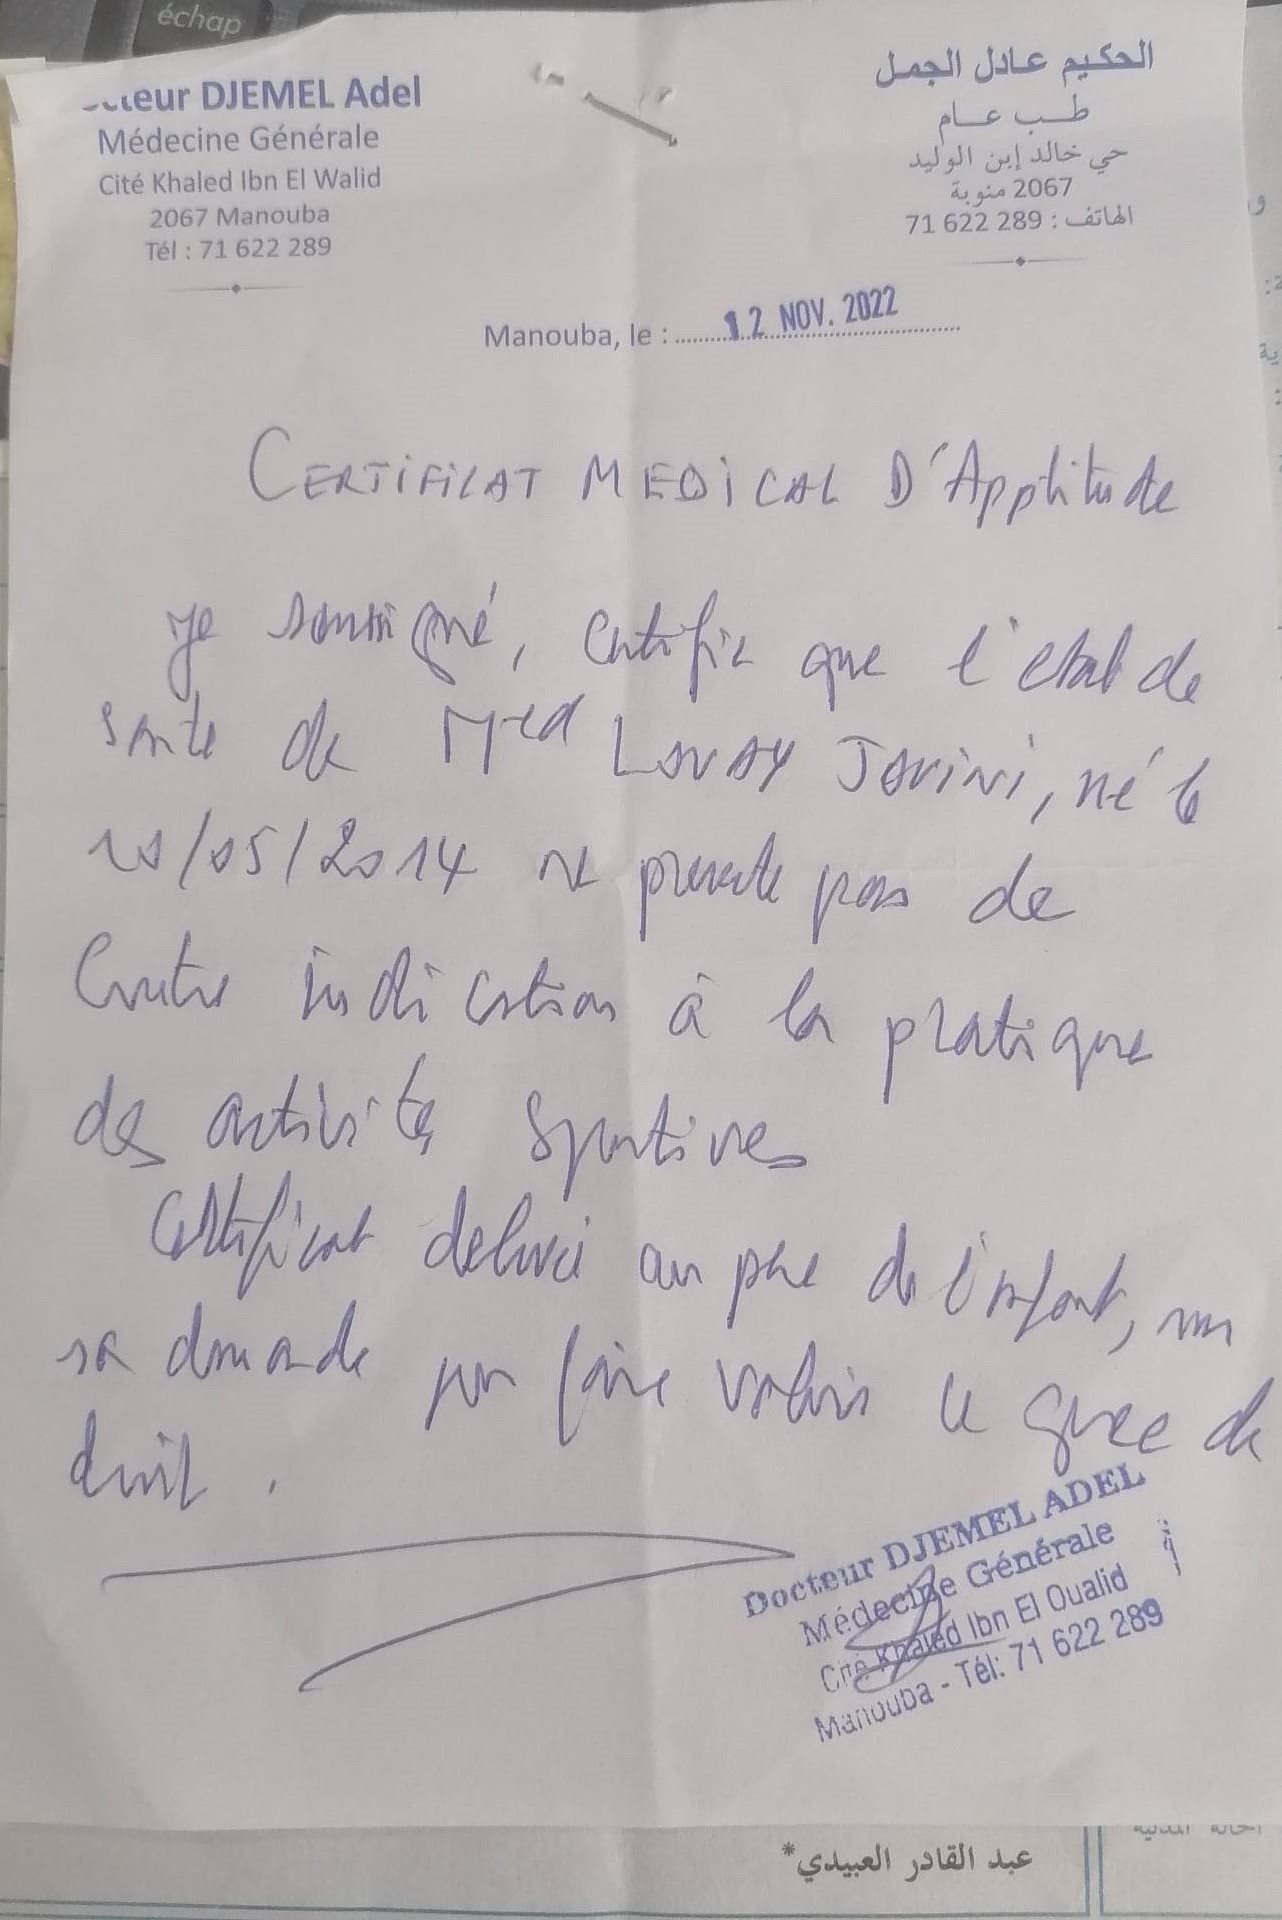 échap
cteur DJEMEL Adel
Médecine Générale
Cité Khaled Ibn El Walid
2067 Manouba
Tél : 71 622 289
الحكيم عادل الجمل
طب عام
حي خالد إبن الوليد
2067 منوبة
الهاتف : 289 622 71
Manouba, le : 12 NOV. 2022
CERTIFICAT MEDICAL D'Apptitude
Je soussigné, certifie que l'etat de
sante de Med LOUAY JOUINI, né le
/05/2014 ne presente pas de
Contre indication à la pratique
des activités sportives
Certificat delivré au père de l'enfant, sur
sa demande pour faire valoir ce que de
droit.
Docteur DJEMEL ADEL
Médecine Générale
Cité Khaled Ibn El Oualid
Manouba - Tél: 71 622 289
الحالة المدنية
عبد القادر العبيدي*